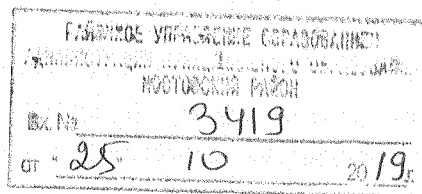 РАЙОННОЕ УПРАВЛЕНИЕ ОБРАЗОВАНИЕМ
АДМИНИСТРАЦИИ МУНИЦИПАЛЬНОГО
МОСТОВСКИЙ РАЙОН
ВХ.№ 3419
от "25" 10 2019г.